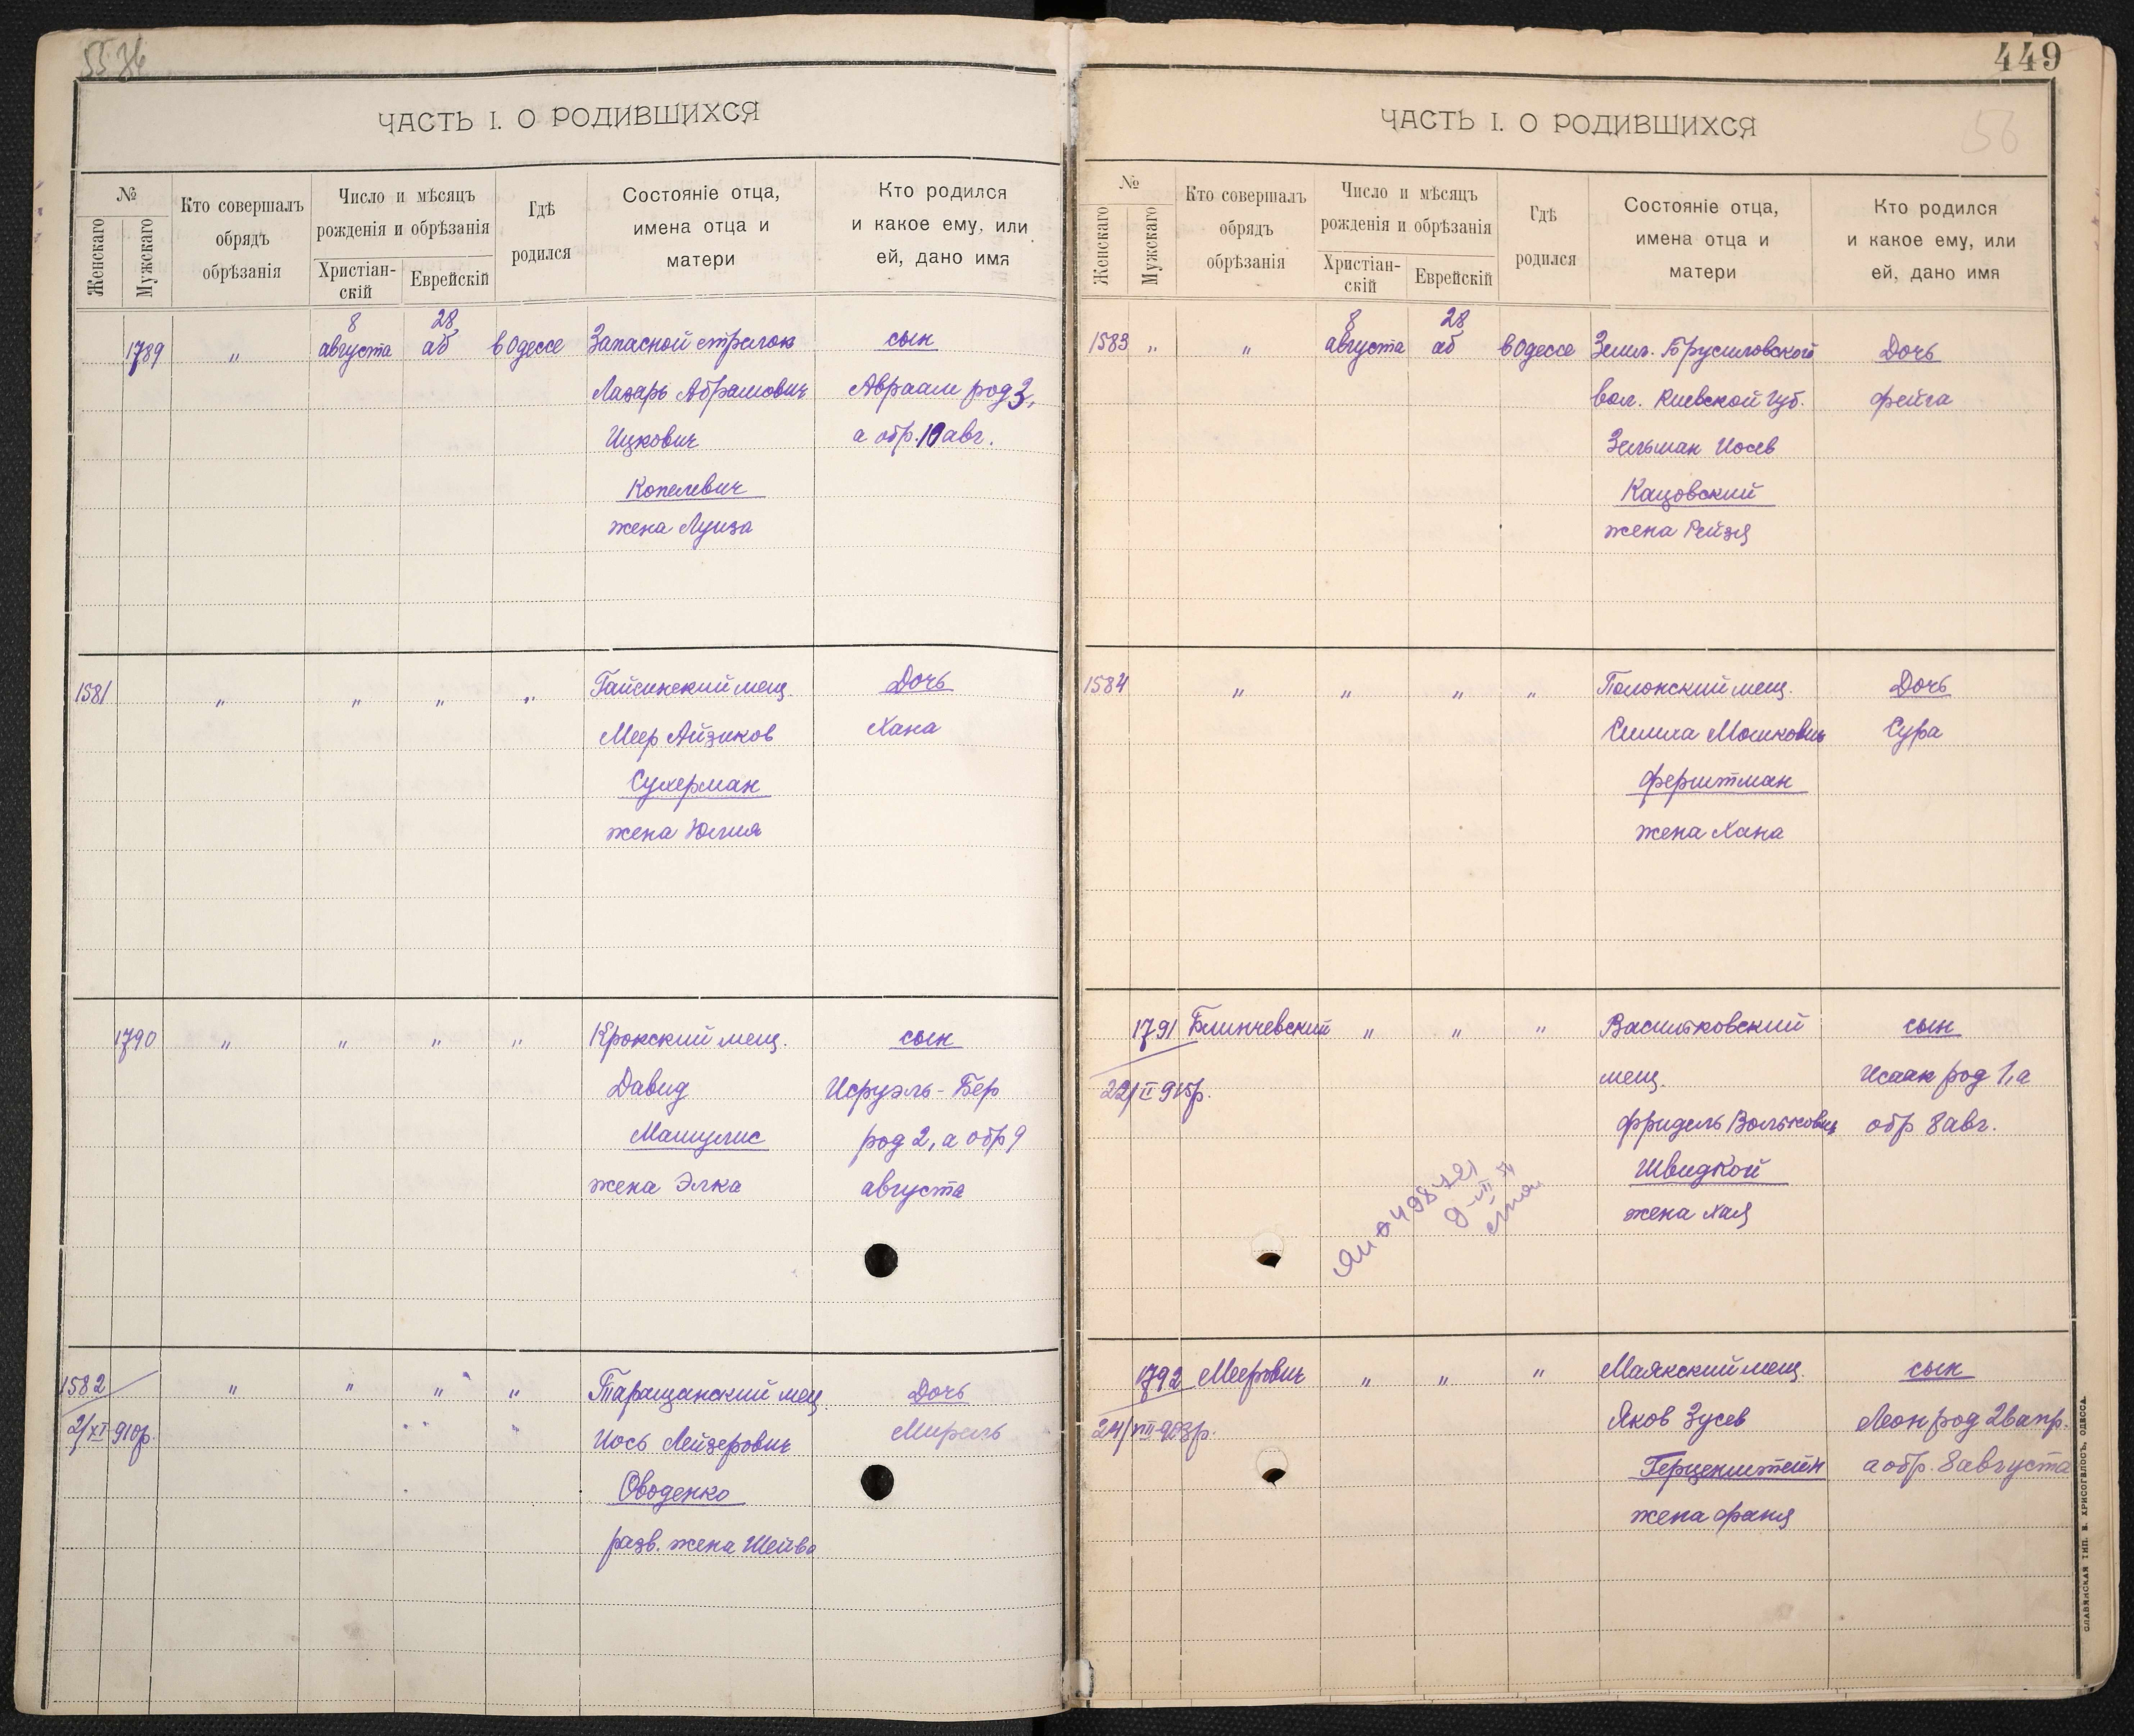 449
ЧАСТЬ I. О РОДИВШИХСЯ
№
Женскаго
Мужскаго
Кто совершалъ
обрядъ
обрѣзанія
Число и мѣсяцъ
рожденія и обрѣзанія
Христіан-
скій
Еврейскій
Гдѣ
родился
Состояніе отца,
имена отца и
матери
Кто родился
и какое ему, или
ей, дано имя
1789
"
8
августа
28
аб
в Одессе
Запасной стрелок
Лазарь Абрамович
Ицкович
Копелевич
жена Луиза
сын
Авраам род 3,
а обр. 10 авг.
1581
" " " "
Гайсинский мещ.
Меер Айзиков
Сухерман
жена Юлия
Дочь
Хана
1790
" " " "
Крокский мещ.
Давид
Машулис
жена Элка
сын
Исруэль-Бер
род 2, а обр 9
августа
1582
2/XI 910р.
" " " "
Таращанский мещ
Иось Лейзерович
Оводенко
разв. жена Шейва
Дочь
Мирель
ЧАСТЬ I. О РОДИВШИХСЯ
56
№
Женскаго
Мужскаго
Кто совершалъ
обрядъ
обрѣзанія
Число и мѣсяцъ
рожденія и обрѣзанія
Христіан-
скій
Еврейскій
Гдѣ
родился
Состояніе отца,
имена отца и
матери
Кто родился
и какое ему, или
ей, дано имя
1583 "
"
8
августа
28
аб
в Одессе
Земл. Брусиловской
вол. Киевской губ.
Зельман Иосев
Кацовский
жена Рейзя
Дочь
Фейга
1584
" " " "
Полонский мещ.
Симха Мошкович
Ферштман
жена Хана
Дочь
Сура
1791
Блинчевский
" " "
Васильковский
мещ.
Фридель Волькович
Швидкой
жена Хая
сын
Исаак род 1, а
обр 8 авг.
1792
Меерович
" " "
Маякский мещ.
Яков Зусев
Герценштейн
жена Фаня
сын
Леон род 26 апр.
а обр. 8 августа
СЛАВЯНСКАЯ ТИП. Н. ХРИСОГЕЛОСЪ, ОДЕССА.